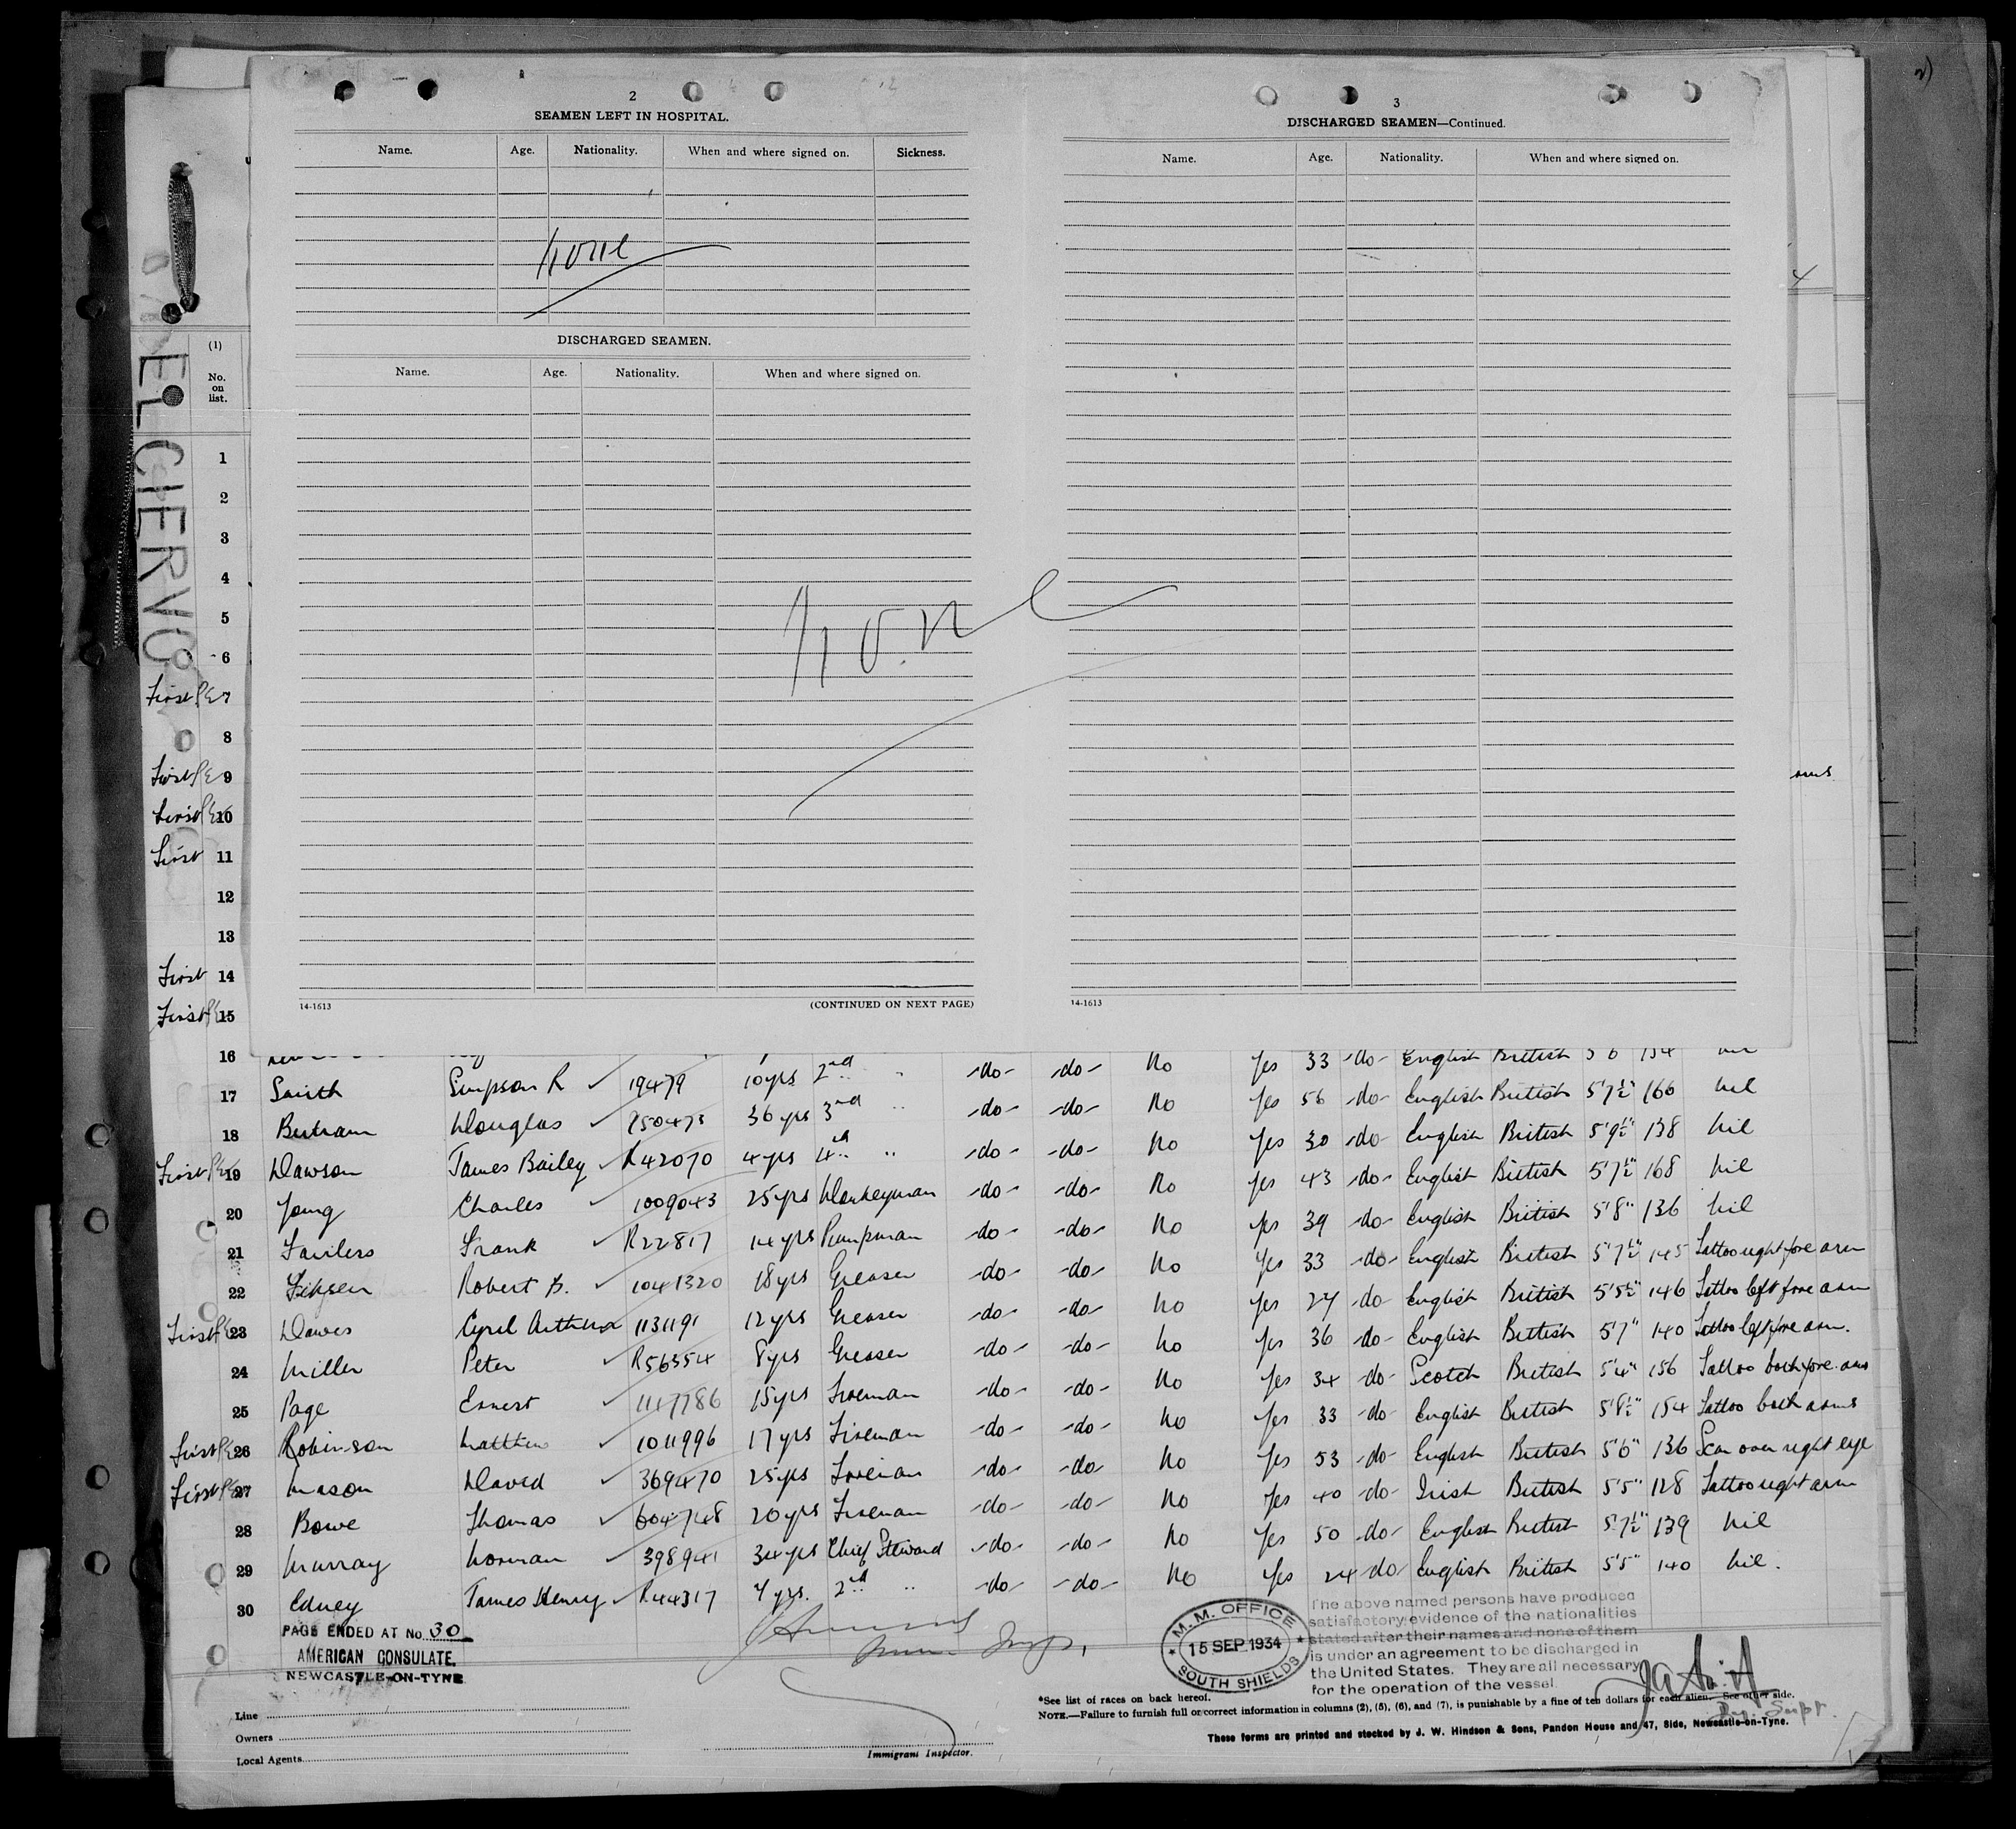 2
SEAMEN LEFT IN HOSPITAL.
Name. Age. Nationality. When and where signed on. Sickness.
none
DISCHARGED SEAMEN.
Name. Age. Nationality. When and where signed on.
none
14-1613 (CONTINUED ON NEXT PAGE)
3
DISCHARGED SEAMEN—Continued.
Name. Age. Nationality. When and where signed on.
14-1613
EL CIERVO
(1)
No. on list.
1
2
3
4
5
6
First 7
8
First 9
First 10
First 11
12
13
First 14
First 15
16 Yes 33 -do- English British 5'6 134 nil
17 Smith Simpson R 19479 10yrs 2nd " -do- -do- No Yes 56 -do- English British 5'7½" 160 nil
18 Butram Douglas 750473 36 yrs 3rd " -do- -do- No Yes 30 -do- English British 5'9½" 138 Nil
First 19 Dawson James Bailey R42070 4yrs 4th " -do- -do- No Yes 43 -do- English British 5'7½" 168 Nil
20 Young Charles 1009043 25yrs Donkeyman -do- -do- No Yes 39 -do- English British 5'8" 136 Nil
21 Frank R22817 14yrs Pumpman -do- -do- No Yes 33 -do- English British 5'7½" 145 Tattoo right fore arm
22 Robert B. 1041320 18yrs Greaser -do- -do- No Yes 27 -do- English British 5'5½" 146 Tattoo left fore arm
First 23 Dawes Cyril Arthur 1131191 12yrs Greaser -do- -do- No Yes 36 -do- English British 5'7" 140 Tattoo left fore arm.
24 Miller Peter R56354 8yrs Greaser -do- -do- No Yes 34 -do- Scotch British 5'4" 156 Tattoo both fore arms
25 Page Ernest 1117786 15yrs Fireman -do- -do- No Yes 33 -do- English British 5'8½" 154 Tattoo both arms
First 26 Robinson Matthew 1011996 17yrs Fireman -do- -do- No Yes 53 -do- English British 5'6" 136 Scar over right eye
First 27 Mason David 369470 25yrs Fireman -do- -do- No Yes 40 -do- Irish British 5'5" 128 Tattoo right arm
28 Bowe Thomas 604748 20yrs Fireman -do- -do- No Yes 50 -do- English British 5'7½" 139 Nil
29 Murray Norman 398941 34yrs Chief Steward -do- -do- No Yes 24 -do- English British 5'5" 140 Nil.
30 Edney James Henry R44317 7 yrs. 2nd " -do- -do- No
PAGE ENDED AT No. 30
AMERICAN CONSULATE,
NEWCASTLE-ON-TYNE
M.M. OFFICE
15 SEP. 1934
SOUTH SHIELDS
The above named persons have produced
satisfactory evidence of the nationalities
stated after their names and none of them
is under an agreement to be discharged in
the United States. They are all necessary
for the operation of the vessel.
Line
Owners
Local Agents
Immigrant Inspector.
*See list of races on back hereof.
NOTE.—Failure to furnish full or correct information in columns (2), (5), (6), and (7), is punishable by a fine of ten dollars for each alien. See other side.
These forms are printed and stocked by J. W. Hindson & Sons, Pandon House and 47, Side, Newcastle-on-Tyne.